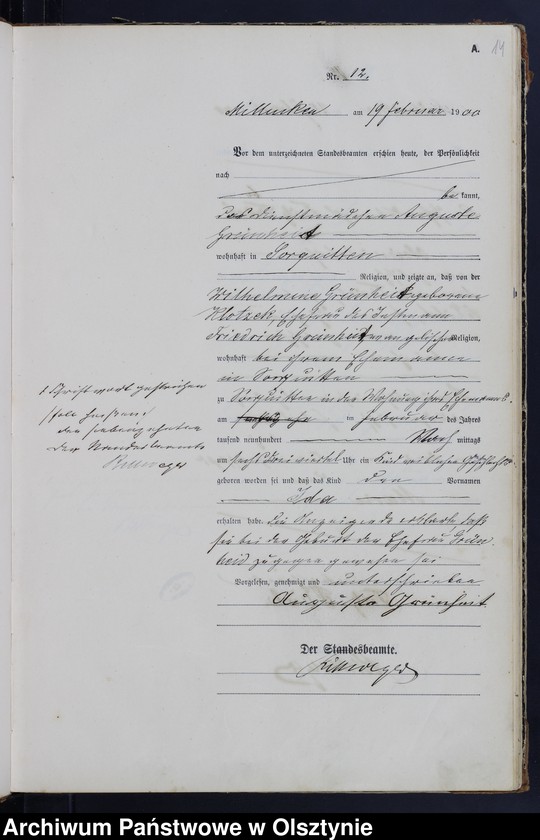 A. 14
Nr. 12.
am 19 Februar 1900
Vor dem unterzeichneten Standesbeamten erschien heute, der Persönlichkeit
nach
be kannt,
das Dienstmädchen Auguste
Grünheit
wohnhaft in Sorquitten
Religion, und zeigte an, daß von der
Wilhelmine Grünheit geborene
Klotzek, Ehefrau des Instmann
Friedrich Grünheit evangelischer Religion,
wohnhaft bei ihrem Ehemanne
in Sorquitten
zu Sorquitten in der Wohnung ihres Ehemannes
am im Februar des Jahres
tausend neunhundert mittags
um sechs drei viertel Uhr ein Kind weiblichen Geschlechts
geboren worden sei und daß das Kind den Vornamen
Ida
erhalten habe. Die Anzeigende erklärte, daß
sie bei der Geburt der Ehefrau Grün
heid zugegen gewesen sei
Vorgelesen, genehmigt und unterschrieben
Auguste Grünheit
Der Standesbeamte.
1 Schrift wort gestrichen
statt
der siebzehnten
Der Standesbeamte
Archiwum Państwowe w Olsztynie